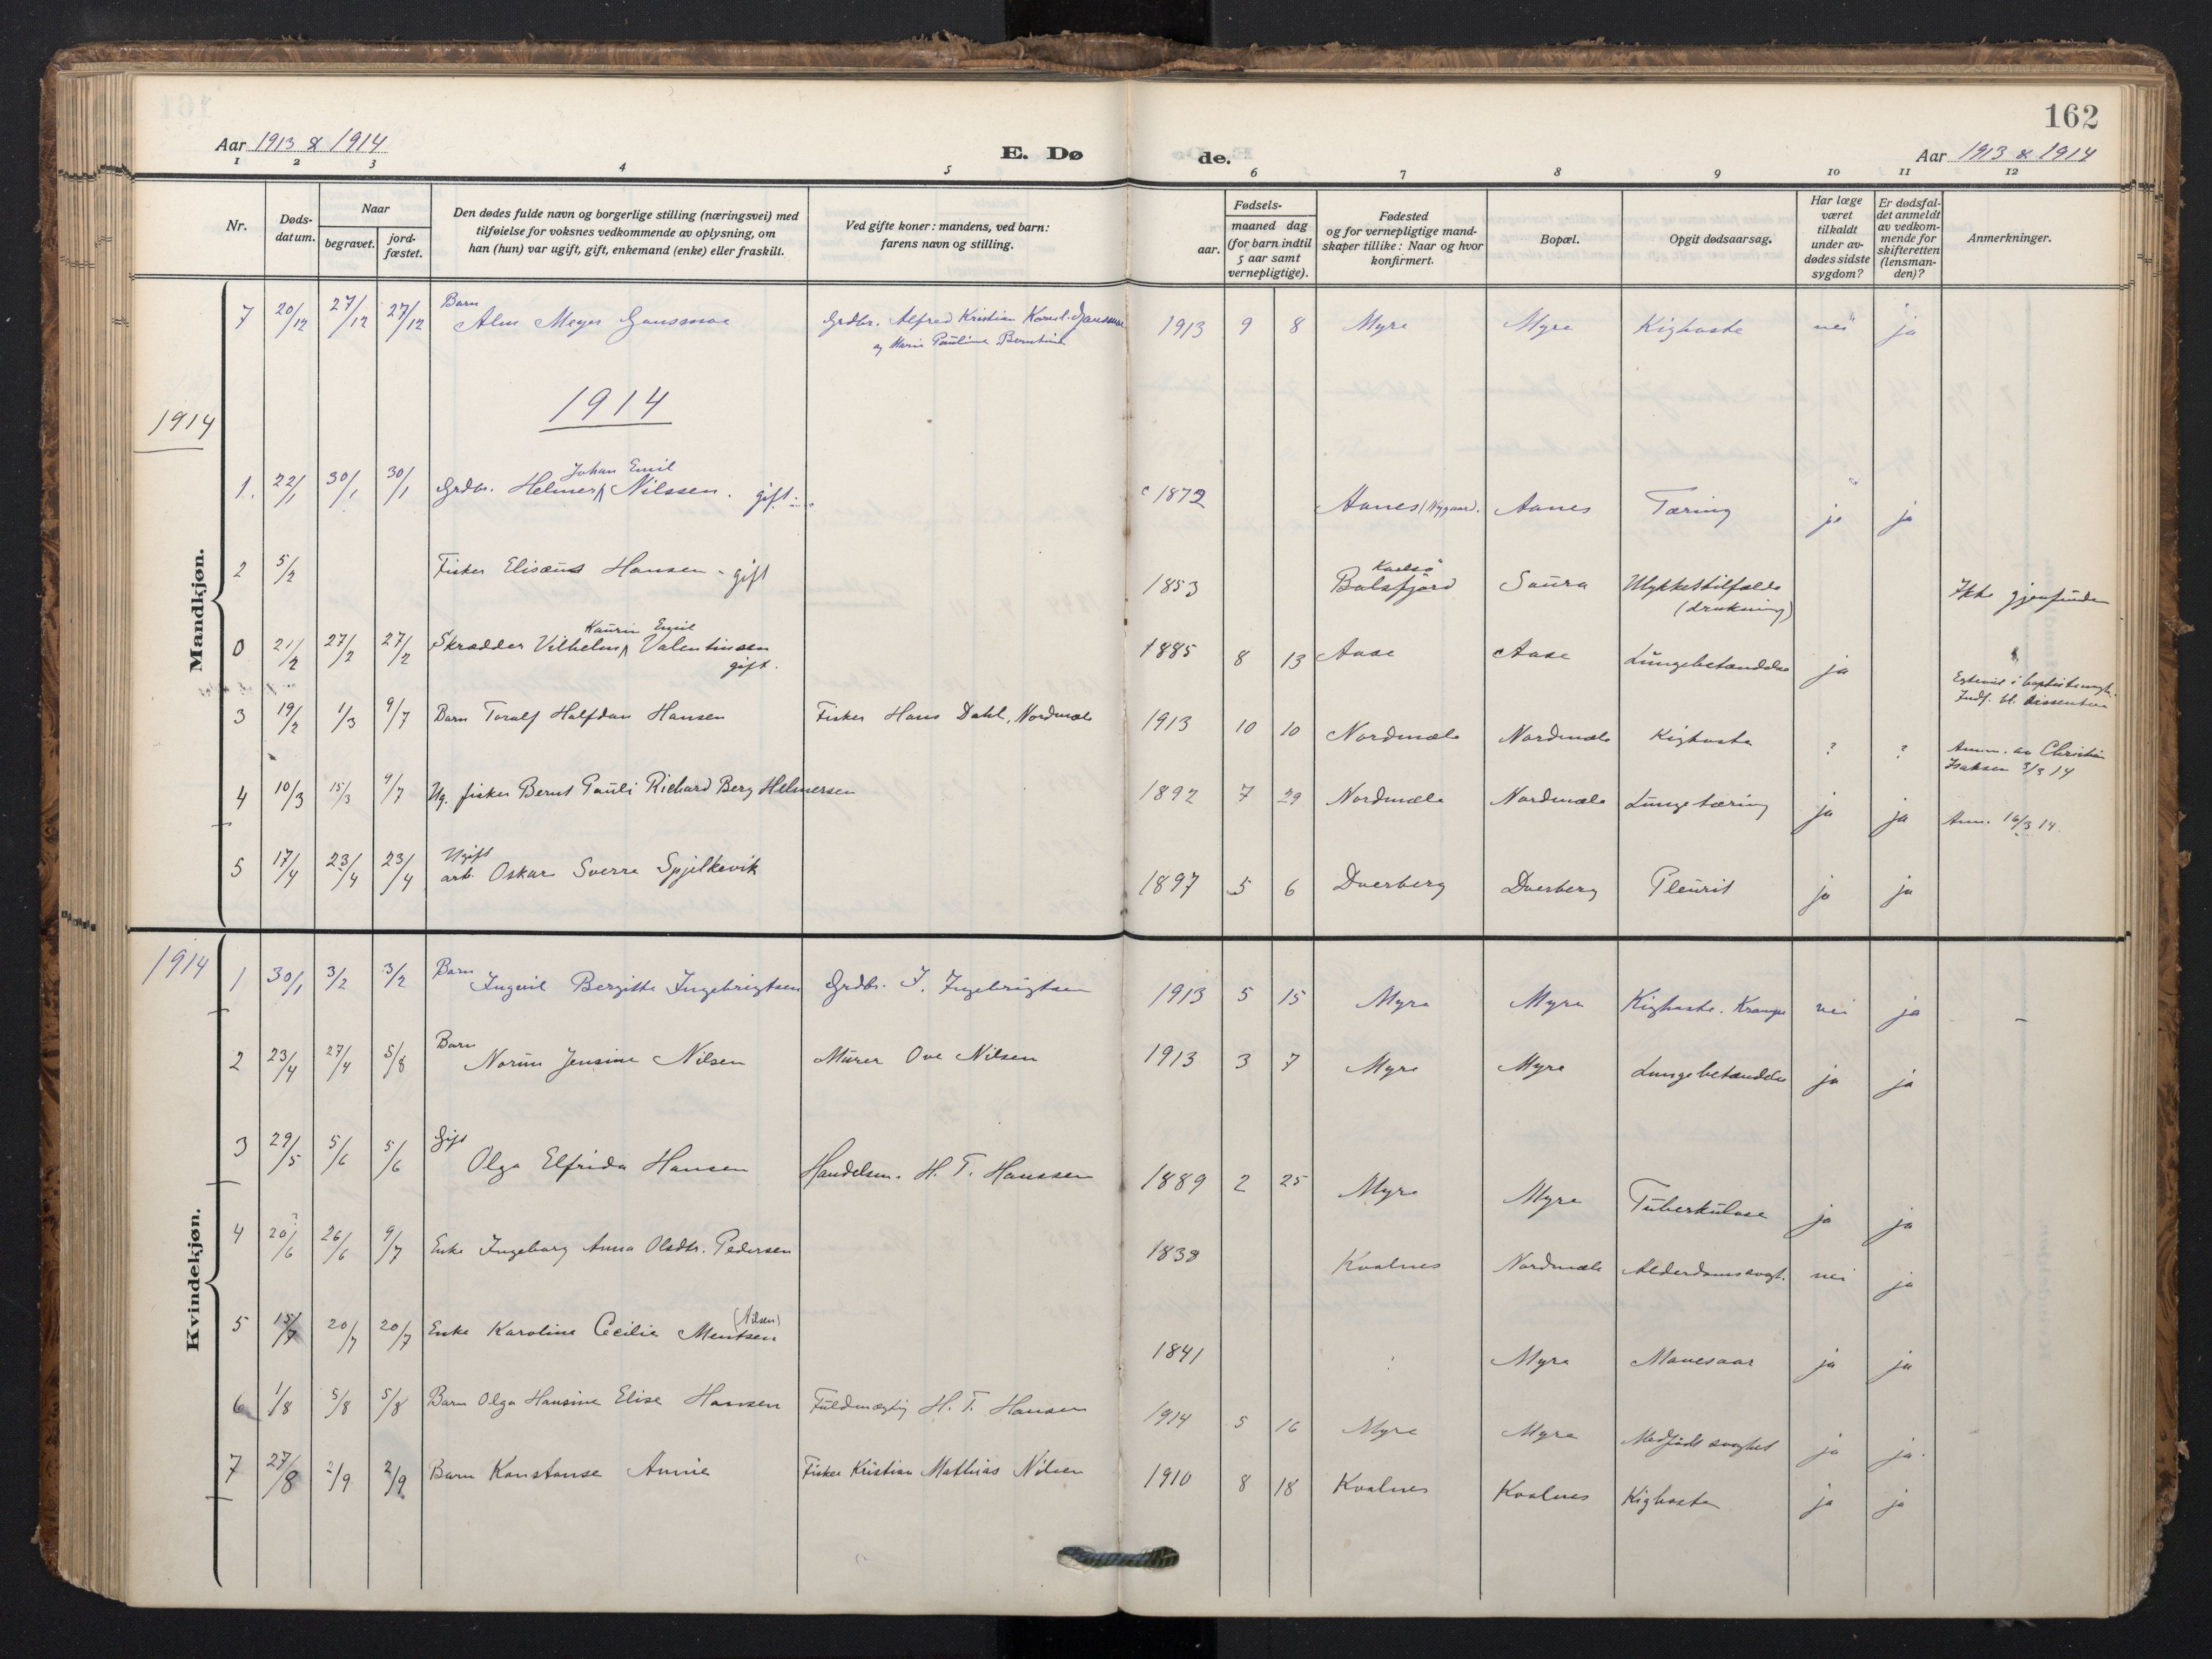 162
Aar 1913 & 1914
E. Dø
de.
Aar 1913 & 1914
1 2 3 4 5 6 7 8 9 10 11 12
Nr.
Døds-
datum.
Naar
begravet.
jord-
fæstet.
Den dødes fulde navn og borgerlige stilling (næringsvei) med
tilføielse for voksnes vedkommende av oplysning, om
han (hun) var ugift, gift, enkemand (enke) eller fraskilt.
Ved gifte koner: mandens, ved barn:
farens navn og stilling.
Fødsels-
aar.
maaned dag
(for barn indtil
5 aar samt
vernepligtige).
Fødested
og for vernepligtige mand-
skaper tillike: Naar og hvor
konfirmert.
Bopæl.
Opgit dødsaarsag.
Har læge
været
tilkaldt
under av-
dødes sidste
sygdom?
Er dødsfal-
det anmeldt
av vedkom-
mende for
skifteretten
(lensman-
den)?
Anmerkninger.
Mandkjøn.
Barn
7 20/12 27/12 27/12 Alm Meyer Gausmoe Grdbr. Alfred Kristian Kornel. Gausmoe 1913 9 8 Myre Myre Kighoste nei ja
og Marie Pauline Berntine
1914
1914
Johan Emil
1. 22/1 30/1 30/1 Grdbr. Helmer Nilssen. gift. c 1872 Aanes (Nygaard). Aanes Tæring ja ja
Karlsö
2 5/2 Fisker Elisæus Hansen - gift 1853 Balsfjord Saura Ulykkestilfælde
(drukning) Ikke gjenfunden
Kaurin Emil
0 21/2 27/2 27/2 Skrædder Vilhelm Valentinsen 1885 8 13 Aase Aase Lungebetændelse ja
gift.
Indf. bl. dissentere
3 19/2 1/3 9/7 Barn Toralf Halfdan Hansen Fisker Hans Dahl, Nordmæle 1913 10 10 Nordmæle Nordmæle Kighoste ? ? Anm. av Christian
Isaksen 3/3 14
4 10/3 15/3 9/7 Ug. fisker Bernt Pauli Richard Berg Helmersen 1892 7 29 Nordmæle Nordmæle Lungetæring ja ja Anm. 16/3 14.
Ugift
5 17/4 23/4 23/4 arb. Oskar Sverre Spjelkevik 1897 5 6 Dverberg Dverberg Pleurit ja ja
1914
Kvindekjøn.
Barn
1 30/1 3/2 3/2 Ingvil Bergitte Ingebrigtsen Grdbr. I. Ingebrigtsen 1913 5 15 Myre Myre Kighoste. Krampe nei ja -
Barn
2 23/4 27/4 5/8 Norun Jensine Nilsen Murer Ove Nilsen 1913 3 7 Myre Myre Lungebetændelse ja ja
Gift
3 29/5 5/6 5/6 Olga Elfrida Hansen Handelsm. H. T. Hanssen 1889 2 25 Myre Myre Tuberkulose ja ja
4 20/6 ? 26/6 9/7 Enke Ingeborg Anna Olsdtr. Pedersen 1838 Kvalnes Nordmæle Alderdomssvagh. nei ja
(Nilsen)
5 15/7 20/7 20/7 Enke Karoline Cecilie Mentsen 1841 : Myre Mavesaar ja ja
6 1/8 5/8 5/8 Barn Olga Hansine Elise Hansen Fuldmægtig H. T. Hansen 1914 5 16 Myre Myre Medfødt svaghet ja ja.
7 27/8 2/9 2/9 Barn Konstanse Annie Fisker Kristian Mathias Nilsen 1910 8 18 Kvalnes Kvalnes Kighoste ja ja